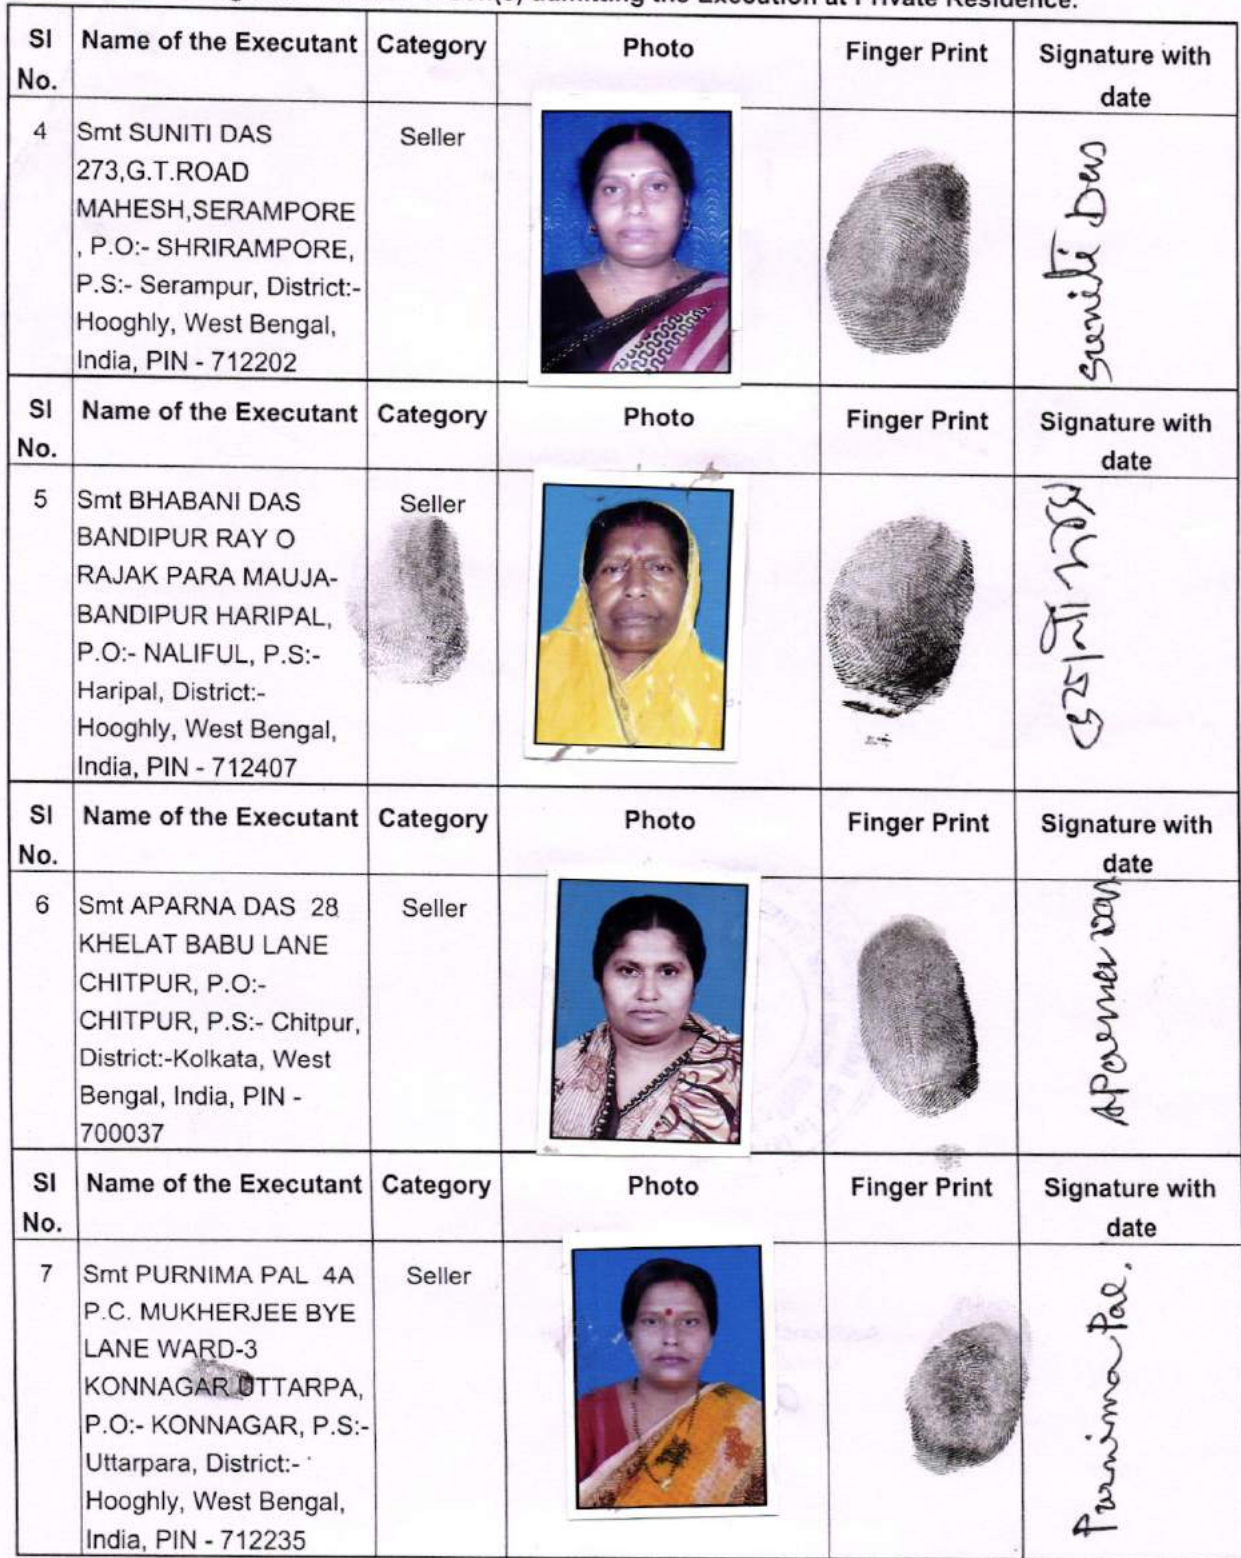 admitting the Execution at Private Residence.
Sl No. Name of the Executant Category Photo Finger Print Signature with date
4 Smt SUNITI DAS Seller
273,G.T.ROAD
MAHESH,SERAMPORE
, P.O:- SHRIRAMPORE,
P.S:- Serampur, District:-
Hooghly, West Bengal,
India, PIN - 712202
Suniti Das
Sl No. Name of the Executant Category Photo Finger Print Signature with date
5 Smt BHABANI DAS Seller
BANDIPUR RAY O
RAJAK PARA MAUJA-
BANDIPUR HARIPAL,
P.O:- NALIFUL, P.S:-
Haripal, District:-
Hooghly, West Bengal,
India, PIN - 712407
Sl No. Name of the Executant Category Photo Finger Print Signature with date
6 Smt APARNA DAS 28 Seller
KHELAT BABU LANE
CHITPUR, P.O:-
CHITPUR, P.S:- Chitpur,
District:-Kolkata, West
Bengal, India, PIN -
700037
Sl No. Name of the Executant Category Photo Finger Print Signature with date
7 Smt PURNIMA PAL 4A Seller
P.C. MUKHERJEE BYE
LANE WARD-3
KONNAGAR UTTARPA,
P.O:- KONNAGAR, P.S:-
Uttarpara, District:-
Hooghly, West Bengal,
India, PIN - 712235
Purnima Pal.